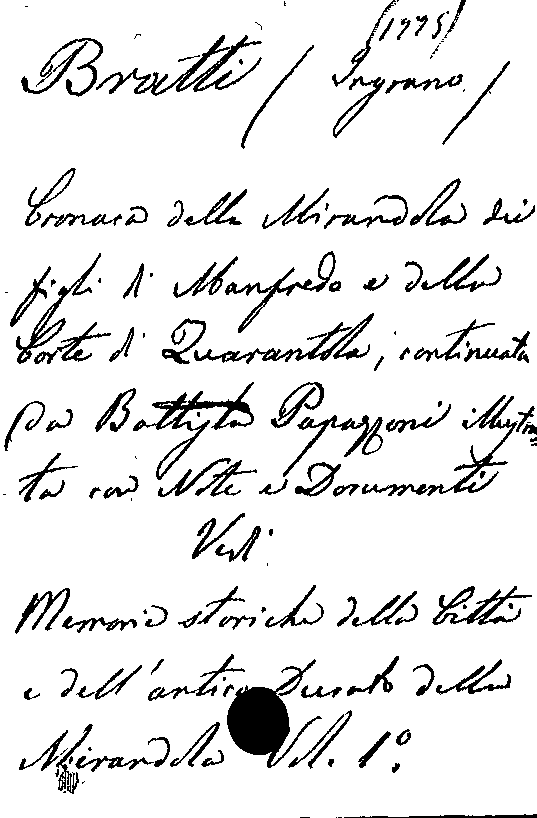 (1775)
Bratti / Ingrano /
Cronaca della Mirandola dei
figli di Manfredo e della
Corte di Quarantola, continuata
da Battista Papazzoni illustra=
ta con Note e Documenti
Vedi
Memorie storiche della Città
e dell'antico Ducato della
Mirandola Vol. 1º.